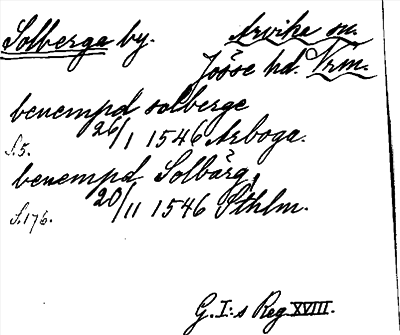 Solberga by.
Arvika sn.
Jösse hd. Vrm.
benempd solberge
26/1 1546 Arboga.
S. 5.
benempd Solbärg,
20/11 1546 Sthlm.
S. 176.
G. I:s Reg XVIII.